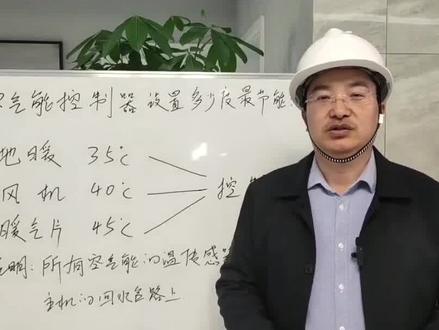 气能控制器设置多少度最节能
地暖 35℃
风机 40℃ 控
暖气片 45℃
明:所有空气能的温传感
主机的回水管路上